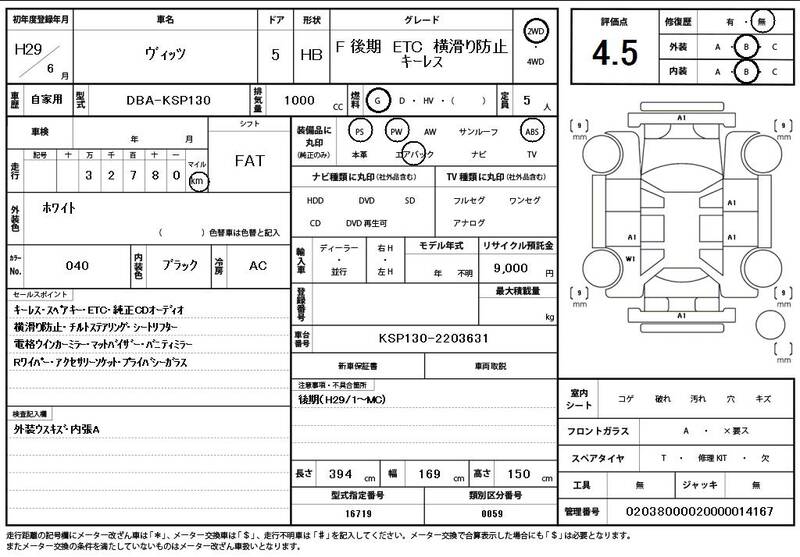 初年度登録年月 車名 ドア 形状 グレード
H29/6月 ヴィッツ 5 HB F 後期 ETC 横滑り防止 キーレス 2WD・4WD
車歴 自家用 型式 DBA-KSP130 排気量 1000 CC 燃料 G・D・HV・( ) 定員 5 人
車検 年 月 シフト FAT
走行 記号 十 万 千 百 十 一 マイル km
3 2 7 8 0
装備品に丸印 (純正のみ) PS PW AW サンルーフ ABS
本革 エアバック ナビ TV
ナビ種類に丸印(社外品含む) TV種類に丸印(社外品含む)
HDD DVD SD フルセグ ワンセグ
CD DVD再生可 アナログ
外装色 ホワイト
( )色替車は色替と記入
カラーNo. 040 内装色 ブラック 冷房 AC
輸入車 ディーラー・並行 右H・左H モデル年式 年 不明 リサイクル預託金 9,000 円
登録番号 最大積載量 kg
車台番号 KSP130-2203631
新車保証書 車両取説
セールスポイント
キーレス・スペアキー・ETC・純正CDオーディオ
横滑り防止・チルトステアリング・シートリフター
電格ウインカーミラー・マットバイザー・バニティミラー
Rワイパー・アクセサリーソケット・プライバシーガラス
検査記入欄
外装ウスキズ・内張A
注意事項・不具合箇所
後期(H29/1〜MC)
長さ 394 cm 幅 169 cm 高さ 150 cm
型式指定番号 類別区分番号
16719 0059
評価点 4.5
修復歴 有・無
外装 A・B・C
内装 A・B・C
A1
[ 9 ] mm [ 9 ] mm
A1
A1 A1
W1
[ 9 ] mm [ 9 ] mm
A1
[ ] mm
室内シート コゲ 破れ 汚れ 穴 キズ
フロントガラス A ・ ×要ス
スペアタイヤ T ・ 修理KIT ・ 欠
工具 無 ジャッキ 無
管理番号 02038000020000014167
走行距離の記号欄にメーター改ざん車は「*」、メーター交換車は「$」、走行不明車は「#」を記入してください。メーター交換で合算表示した場合にも「$」は必要となります。
またメーター交換の条件を満たしていないものはメーター改ざん車扱いとなります。